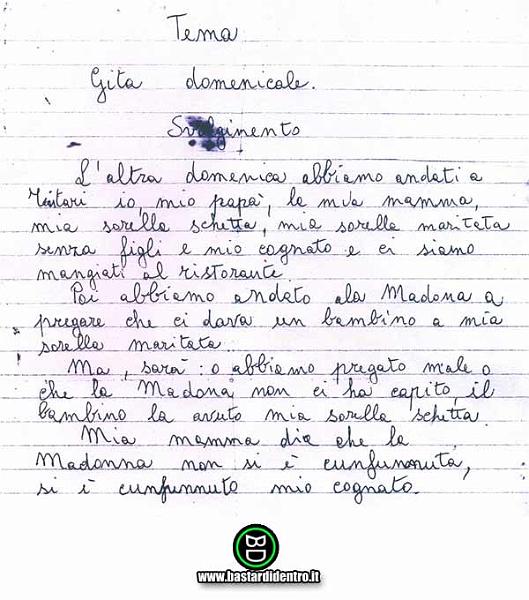 Tema
Gita domenicale.
Svolgimento
L'altra domenica abbiamo andati a
Tintari io, mio papà, la mia mamma,
mia sorella schetta, mia sorella maritata
senza figli e mio cognato e ci siamo
mangiati al ristorante.
Poi abbiamo andato ala Madona a
pregare che ci dava un bambino a mia
sorella maritata.
Ma, sarà: o abbiamo pregato male o
che la Madona non ci ha capito, il
bambino la avuto mia sorella schetta.
Mia mamma dia che la
Madonna non si è cunfunnuta,
si è cunfunnuto mio cognato.
BD
www.bastardidentro.it